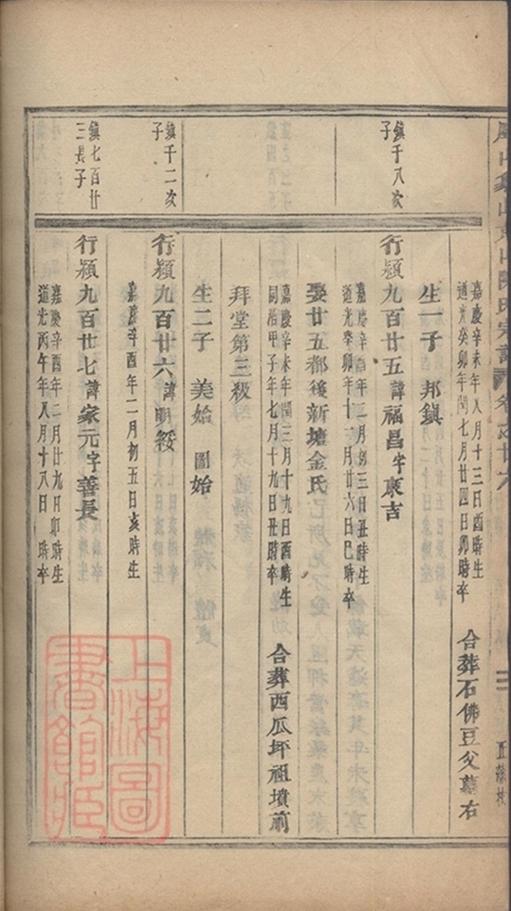 嘉慶辛未年八月十三日酉時生
道光癸卯年閏七月廿四日卯時卒
合葬石佛豆父墓右
生一子 邦鎮
鎮千八次
子
行潁九百廿五諱福昌字東吉
嘉慶辛酉年二月初三日丑時生
道光癸卯年十二月廿六日巳時卒
娶廿五都後新塘金氏
嘉慶辛未年閏三月十九日酉時生
同治甲子年七月十九日丑時卒
合葬西瓜坪祖墳前
拜堂第三級
生二子 美始 圖始
鎮千二次
子
行潁九百廿六諱明綏
嘉慶辛酉年二月初五日亥時生
鎮七百廿
三長子
行潁九百廿七諱家元字善長
嘉慶辛酉年二月廿九日卯時生
道光丙午年八月十八日 時卒
上海圖
書館藏